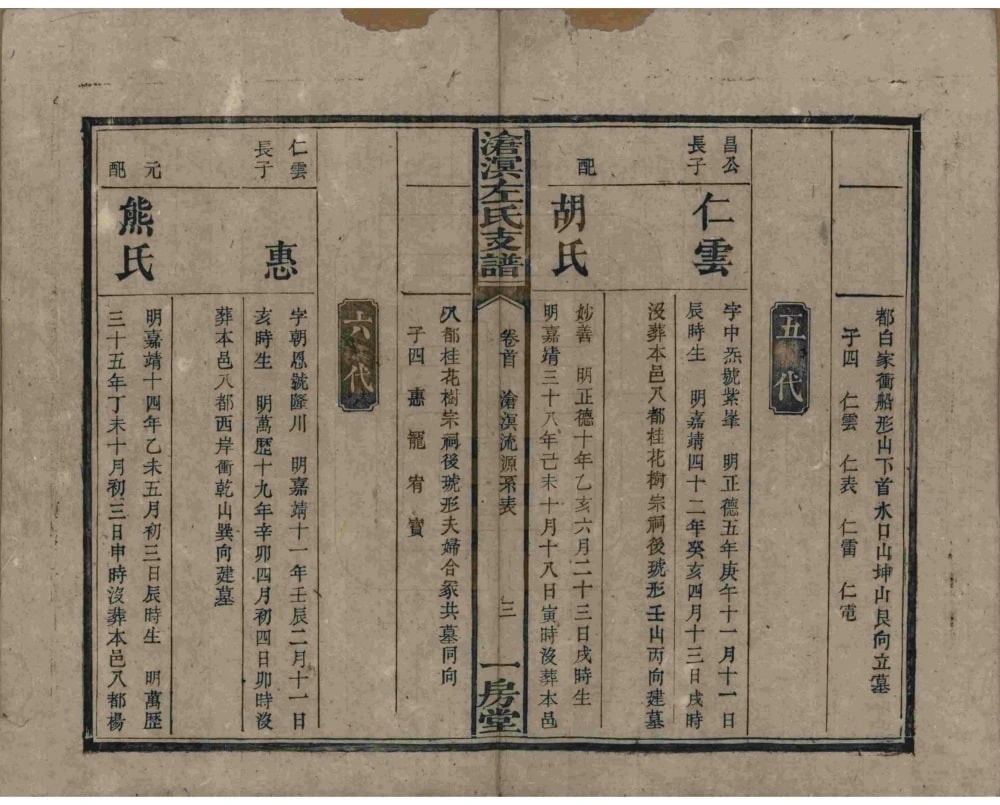 都白家衝船形山下首水口山坤山艮向立墓
子四 仁雲 仁表 仁雷 仁電
五代
昌公
長子
仁雲
字中炁號紫峯 明正德五年庚午十一月十一日
辰時生 明嘉靖四十二年癸亥四月十三日戌時
沒葬本邑八都桂花樹宗祠後虎形壬山丙向建墓
配
胡氏
妙善 明正德十年乙亥六月二十三日戌時生
明嘉靖三十八年己未十月十八日寅時沒葬本邑
滄溟左氏支譜
卷首 滄溟流源系表 三
一房堂
八都桂花樹宗祠後虎形夫婦合冢共墓同向
子四 惠 寵 宥 寳
六代
仁雲
長子
惠
字朝恩號隆川 明嘉靖十一年壬辰二月十一日
亥時生 明萬歷十九年辛卯四月初四日卯時沒
葬本邑八都西岸衝乾山巽向建墓
元配
熊氏
明嘉靖十四年乙未五月初三日辰時生 明萬歷
三十五年丁未十月初三日申時沒葬本邑八都楊